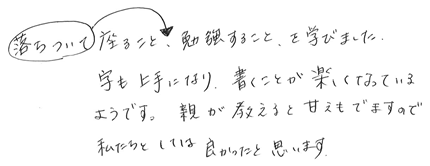 落ちついて座ること、勉強すること、を学びました.
字も上手になり、書くことが楽しくなっている
ようです。親が教えると甘えもでますので
私たちとしては良かったと思います.